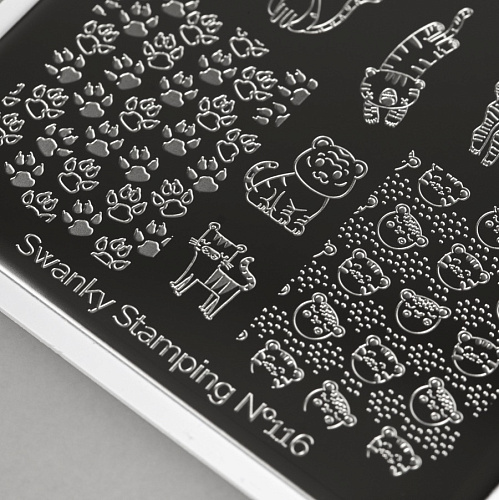 Swanky Stamping №116